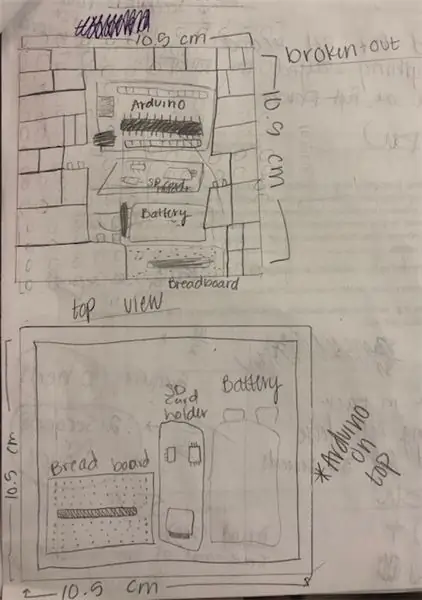 10.5 cm
broken-out
10.5 cm
Arduino
SD
Battery
Breadboard
top view
SD
Card
holder
Battery
Bread board
10.5 cm
*Arduino
on
top
10.5 cm